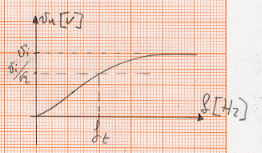 vu [V]
vi
vi/√2
f [Hz]
ft